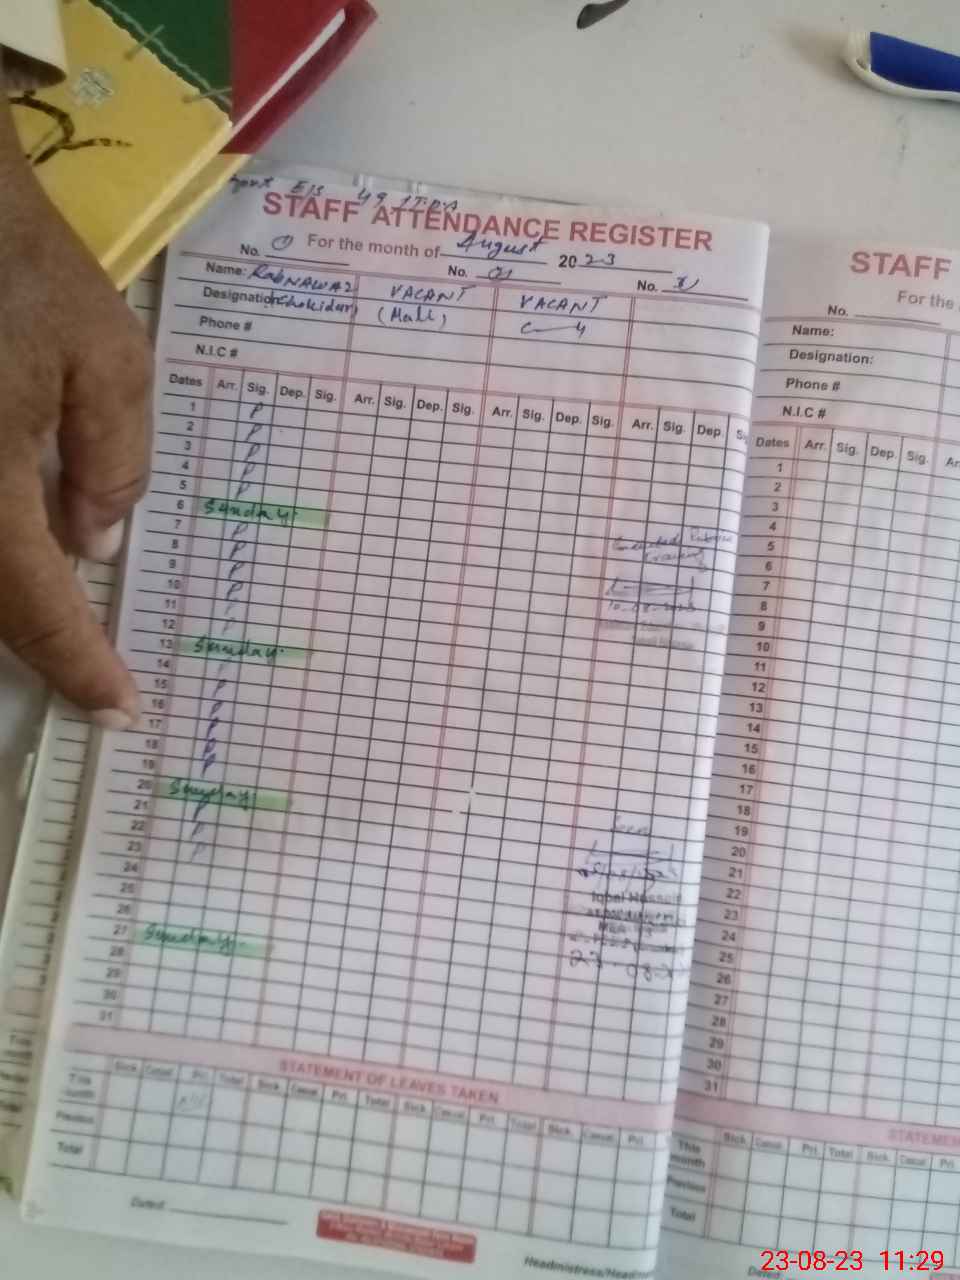 STAFF ATTENDANCE REGISTER
No. For the month of August 2023
No. 01
No.
Name: RabNAWAZ VACANT VACANT
Designation (Chokidar) (Mali)
Phone #
N.I.C #
Dates Arr. Sig. Dep. Sig. Arr. Sig. Dep. Sig. Arr. Sig. Dep. Sig. Arr. Sig. Dep.
1 P
2 P
3 P
4 P
5 P
6 Sunday.
7 P
8 P
9 P
10 P
11 P
12 P
13 Sunday.
14 P
15 P
16 P
17 P
18 P
19 P
20 Sunday.
21 P
22 P
23 P
24
25
26
27 Sunday.
28
29
30
31
10-08-2023
Seen
Iqbal Hussain
STATEMENT OF LEAVES TAKEN
Sick Casual Pri. Total Sick. Casual Pri. Total Sick. Casual Pri. Total Sick. Casual Pri.
This month
Previous
Total
Dated:
Headmistress/
STAFF
For the
No.
Name:
Designation:
Phone #
N.I.C #
Dates Arr. Sig. Dep. Sig.
1
2
3
4
5
6
7
8
9
10
11
12
13
14
15
16
17
18
19
20
21
22
23
24
25
26
27
28
29
30
31
STATEMEN
Sick. Casual Pri. Total Sick. Casual Pri.
This month
Previous
Total
Dated
23-08-23 11:29